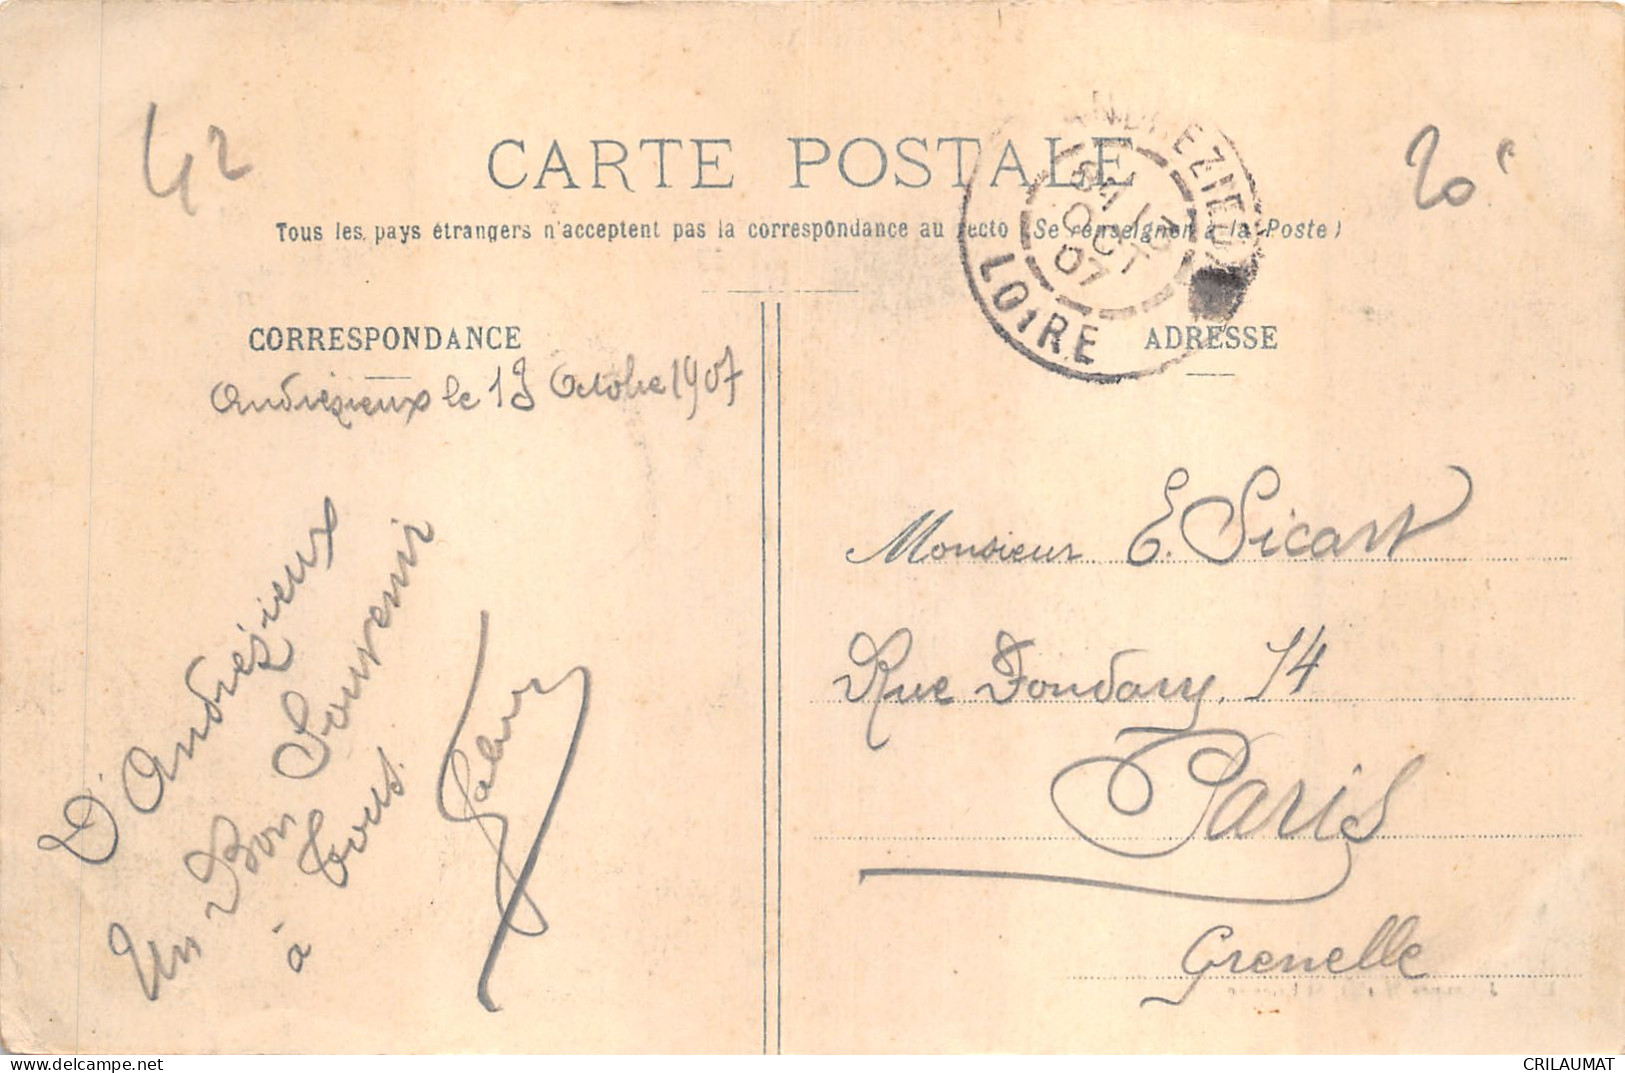 42
20c
CARTE POSTALE
Tous les pays étrangers n'acceptent pas la correspondance au recto (Se renseigner à la Poste)
ANDREZIEUX
13
OCT
07
LOIRE
CORRESPONDANCE
ADRESSE
Andrézieux le 13 Octobre 1907
D'Andrézieux
Un Bon Souvenir
à Tous.
Monsieur E. Sicart
Rue Fondary. 14
Paris
Grenelle
CRILAUMAT